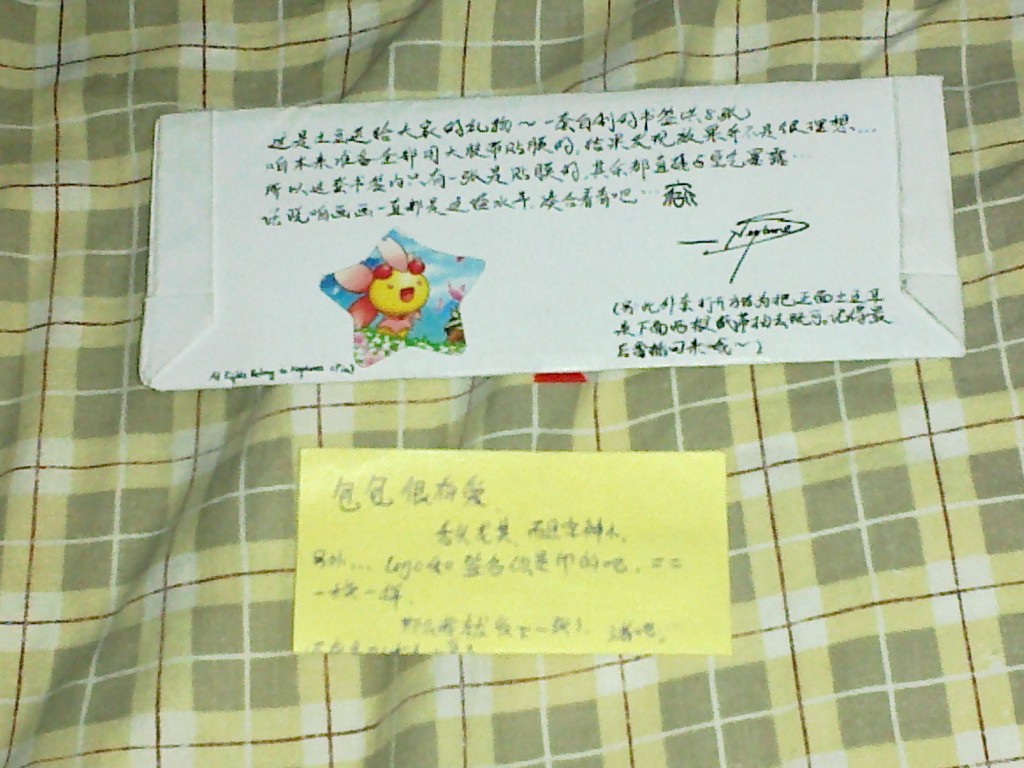 这是土豆送给大家的礼物~一套自制的书签共8张)
咱本来准备全部用大胶带贴膜的,结果发现效果并不是很理想...
所以这套书签内只有一张是贴膜的,其余都直接与空气暴露...
话说咱画画一直都是这些水平,凑合看看吧...
Neptune
(另:此外套打开方法为把正面土豆耳
朵下面两根纸带抽去既可,记得最
后要插回来哦~)
All Rights Belong to Neptune
包包很有爱
舌头尤其,而且
另外... Logo和签名你是印的吧. ==
一模一样.